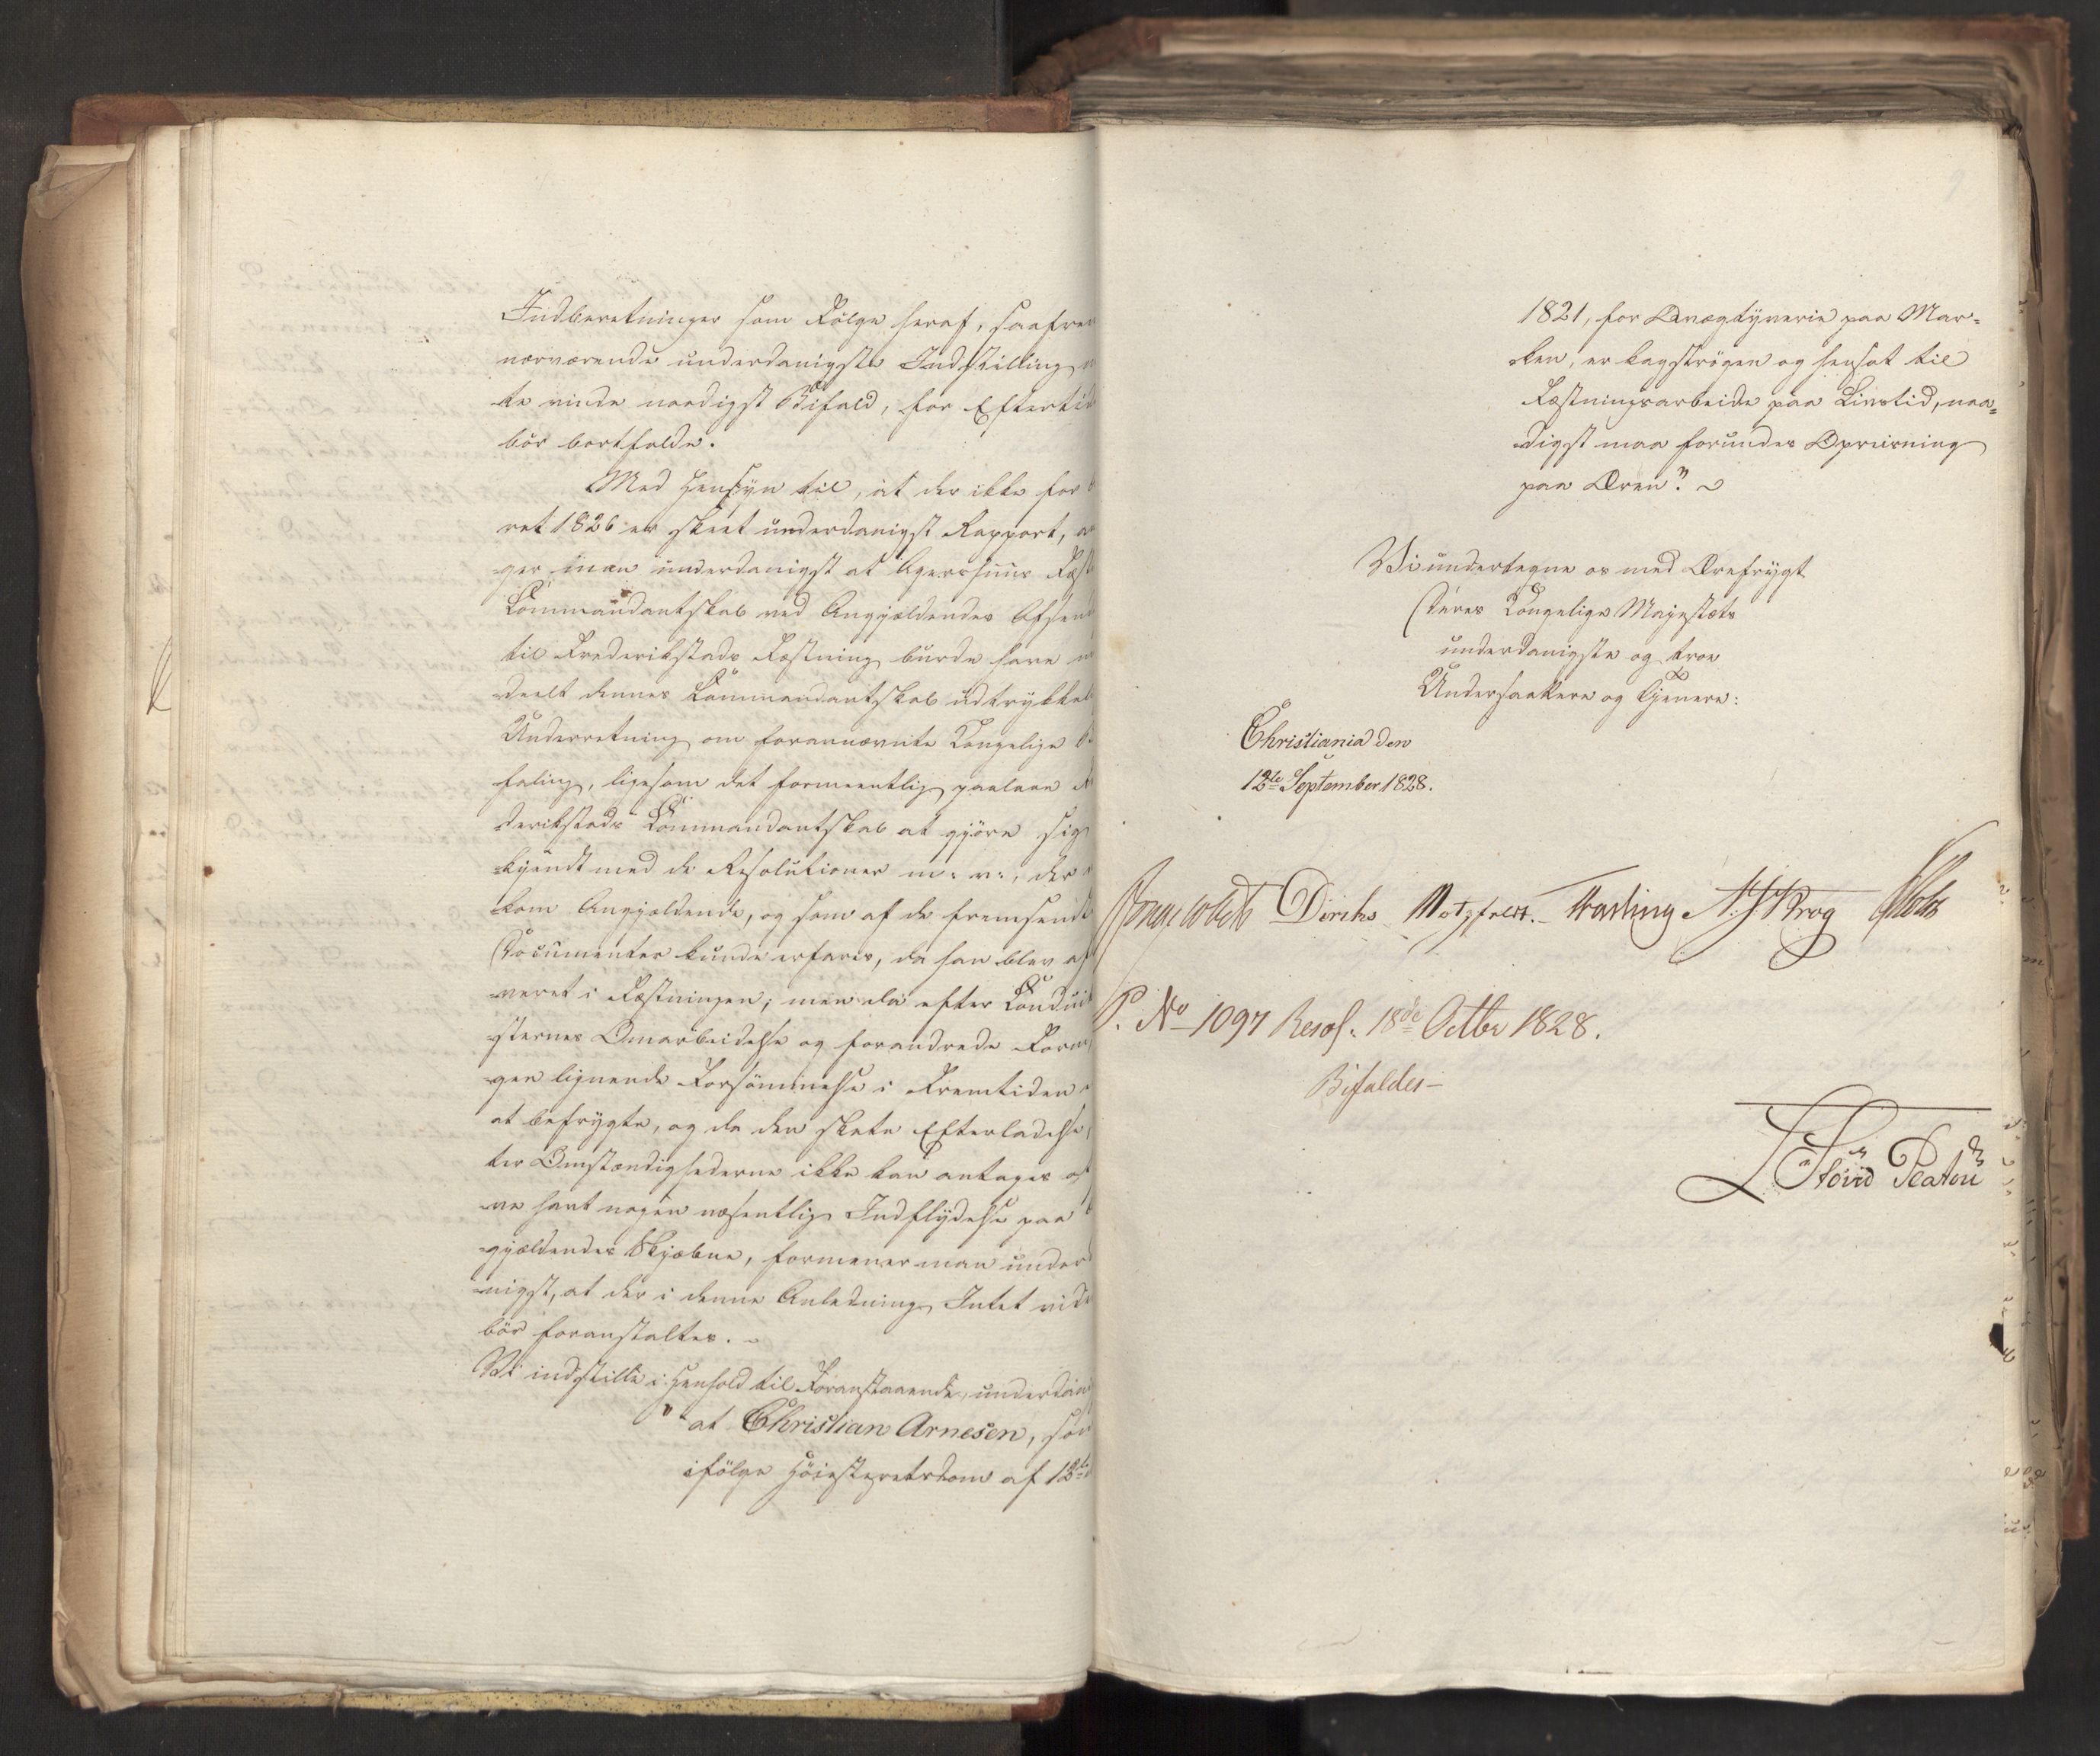 Indberetninger som Følge heraf, saafrem
nærværende underdanigste Indstilling
te vinde naadigst Bifald, for Eftertid
bör bortfalde.
Med Hensyn til, at der ikke for
ret 1826 er skeet underdanigst Rapport, an
ger man underdanigst at Agershuus Fæst
Commandantskab ved Angjældendes Afsend
til Frederikstads Fæstning burde have
deelt dennes Commandantskab udtrykkel
Underretning om forannævnte Kongelige Be
faling, ligesom det formeentlig paalaae
derikstads Commandantskab at gjöre sig
bekjendt med de Resolutioner m: v:, der
kom Angjældende, og som af de fremsendte
Documenter kunde erfares, da han blev af
veret i Fæstningen; men da efter Conduit
sternes Omarbeidelse og forandrede Form
gen lignende Forsömmelse i Fremtiden
at befrygte, og da den skete Efterladelse,
ter Omstændighederne ikke kan antages at
ve havt nogen væsentlig Indflydelse paa
gjældendes Skjæbne, formener man under
nigst, at der i denne Anledning Intet vide
bör foranstaltes. -
Vi indstille i Henhold til Foranstaaende, underdanig
"at Christian Arnesen, som
ifölge Höiesteretsdom af 12te
1821, for Qvægtyverie paa Mar=
ken, er kagströgen og hensat til
Fæstningsarbeide paa Livstid, naa=
digst maa forundes Opreisning
paa Æren."
Vi undertegne os med Ærefrygt
Deres Kongelige Majestæts
underdanigste og troe
Undersaatere og tjenere:
Christiania den
12te September 1828.
Diriks Motzfeldt. Fasting A. J. Krog
P. No 1097 Resol. 18de Octbr 1828.
Bifaldes -
Lövenskiold